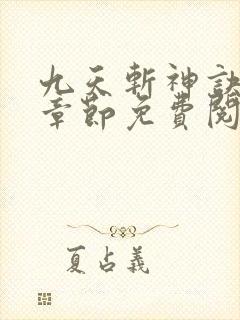 九天斬神訣
章節免費閱
夏占義